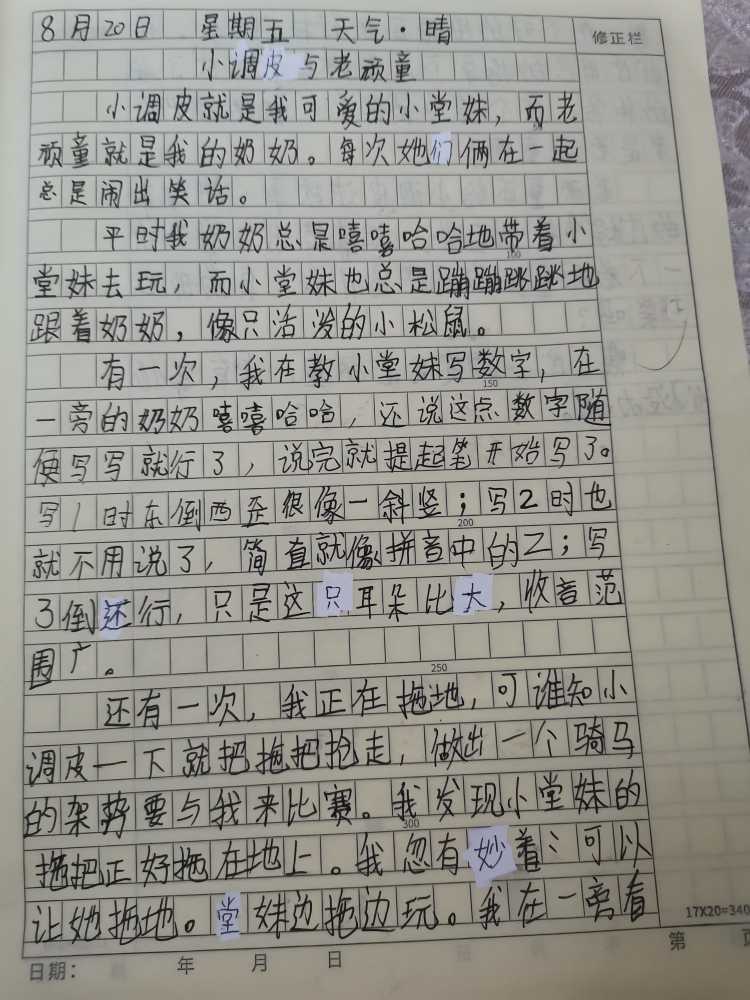 8月20日 星期五 天气·晴
修正栏
小调皮与老顽童
小调皮就是我可爱的小堂妹，而老
顽童就是我的奶奶。每次她们俩在一起
总是闹出笑话。
平时我奶奶总是嘻嘻哈哈地带着小
100
堂妹去玩，而小堂妹也总是蹦蹦跳跳地
跟着奶奶，像只活泼的小松鼠。
有一次，我在教小堂妹写数字，在
150
一旁的奶奶嘻嘻哈哈，还说这点数字随
便写写就行了，说完就提起笔开始写了。
写1时东倒西歪很像一斜竖；写2时也
200
就不用说了，简直就像拼音中的Z；写
3倒还行，只是这只耳朵比大，收音范
围广。
250
还有一次，我正在拖地，可谁知小
调皮一下就把拖把抢走，做出一个骑马
的架势要与我来比赛。我发现小堂妹的
300
拖把正好拖在地上。我忽有妙着：可以
让她拖地。堂妹边拖边玩。我在一旁看
17X20=340
日期： 年 月 日
第 页